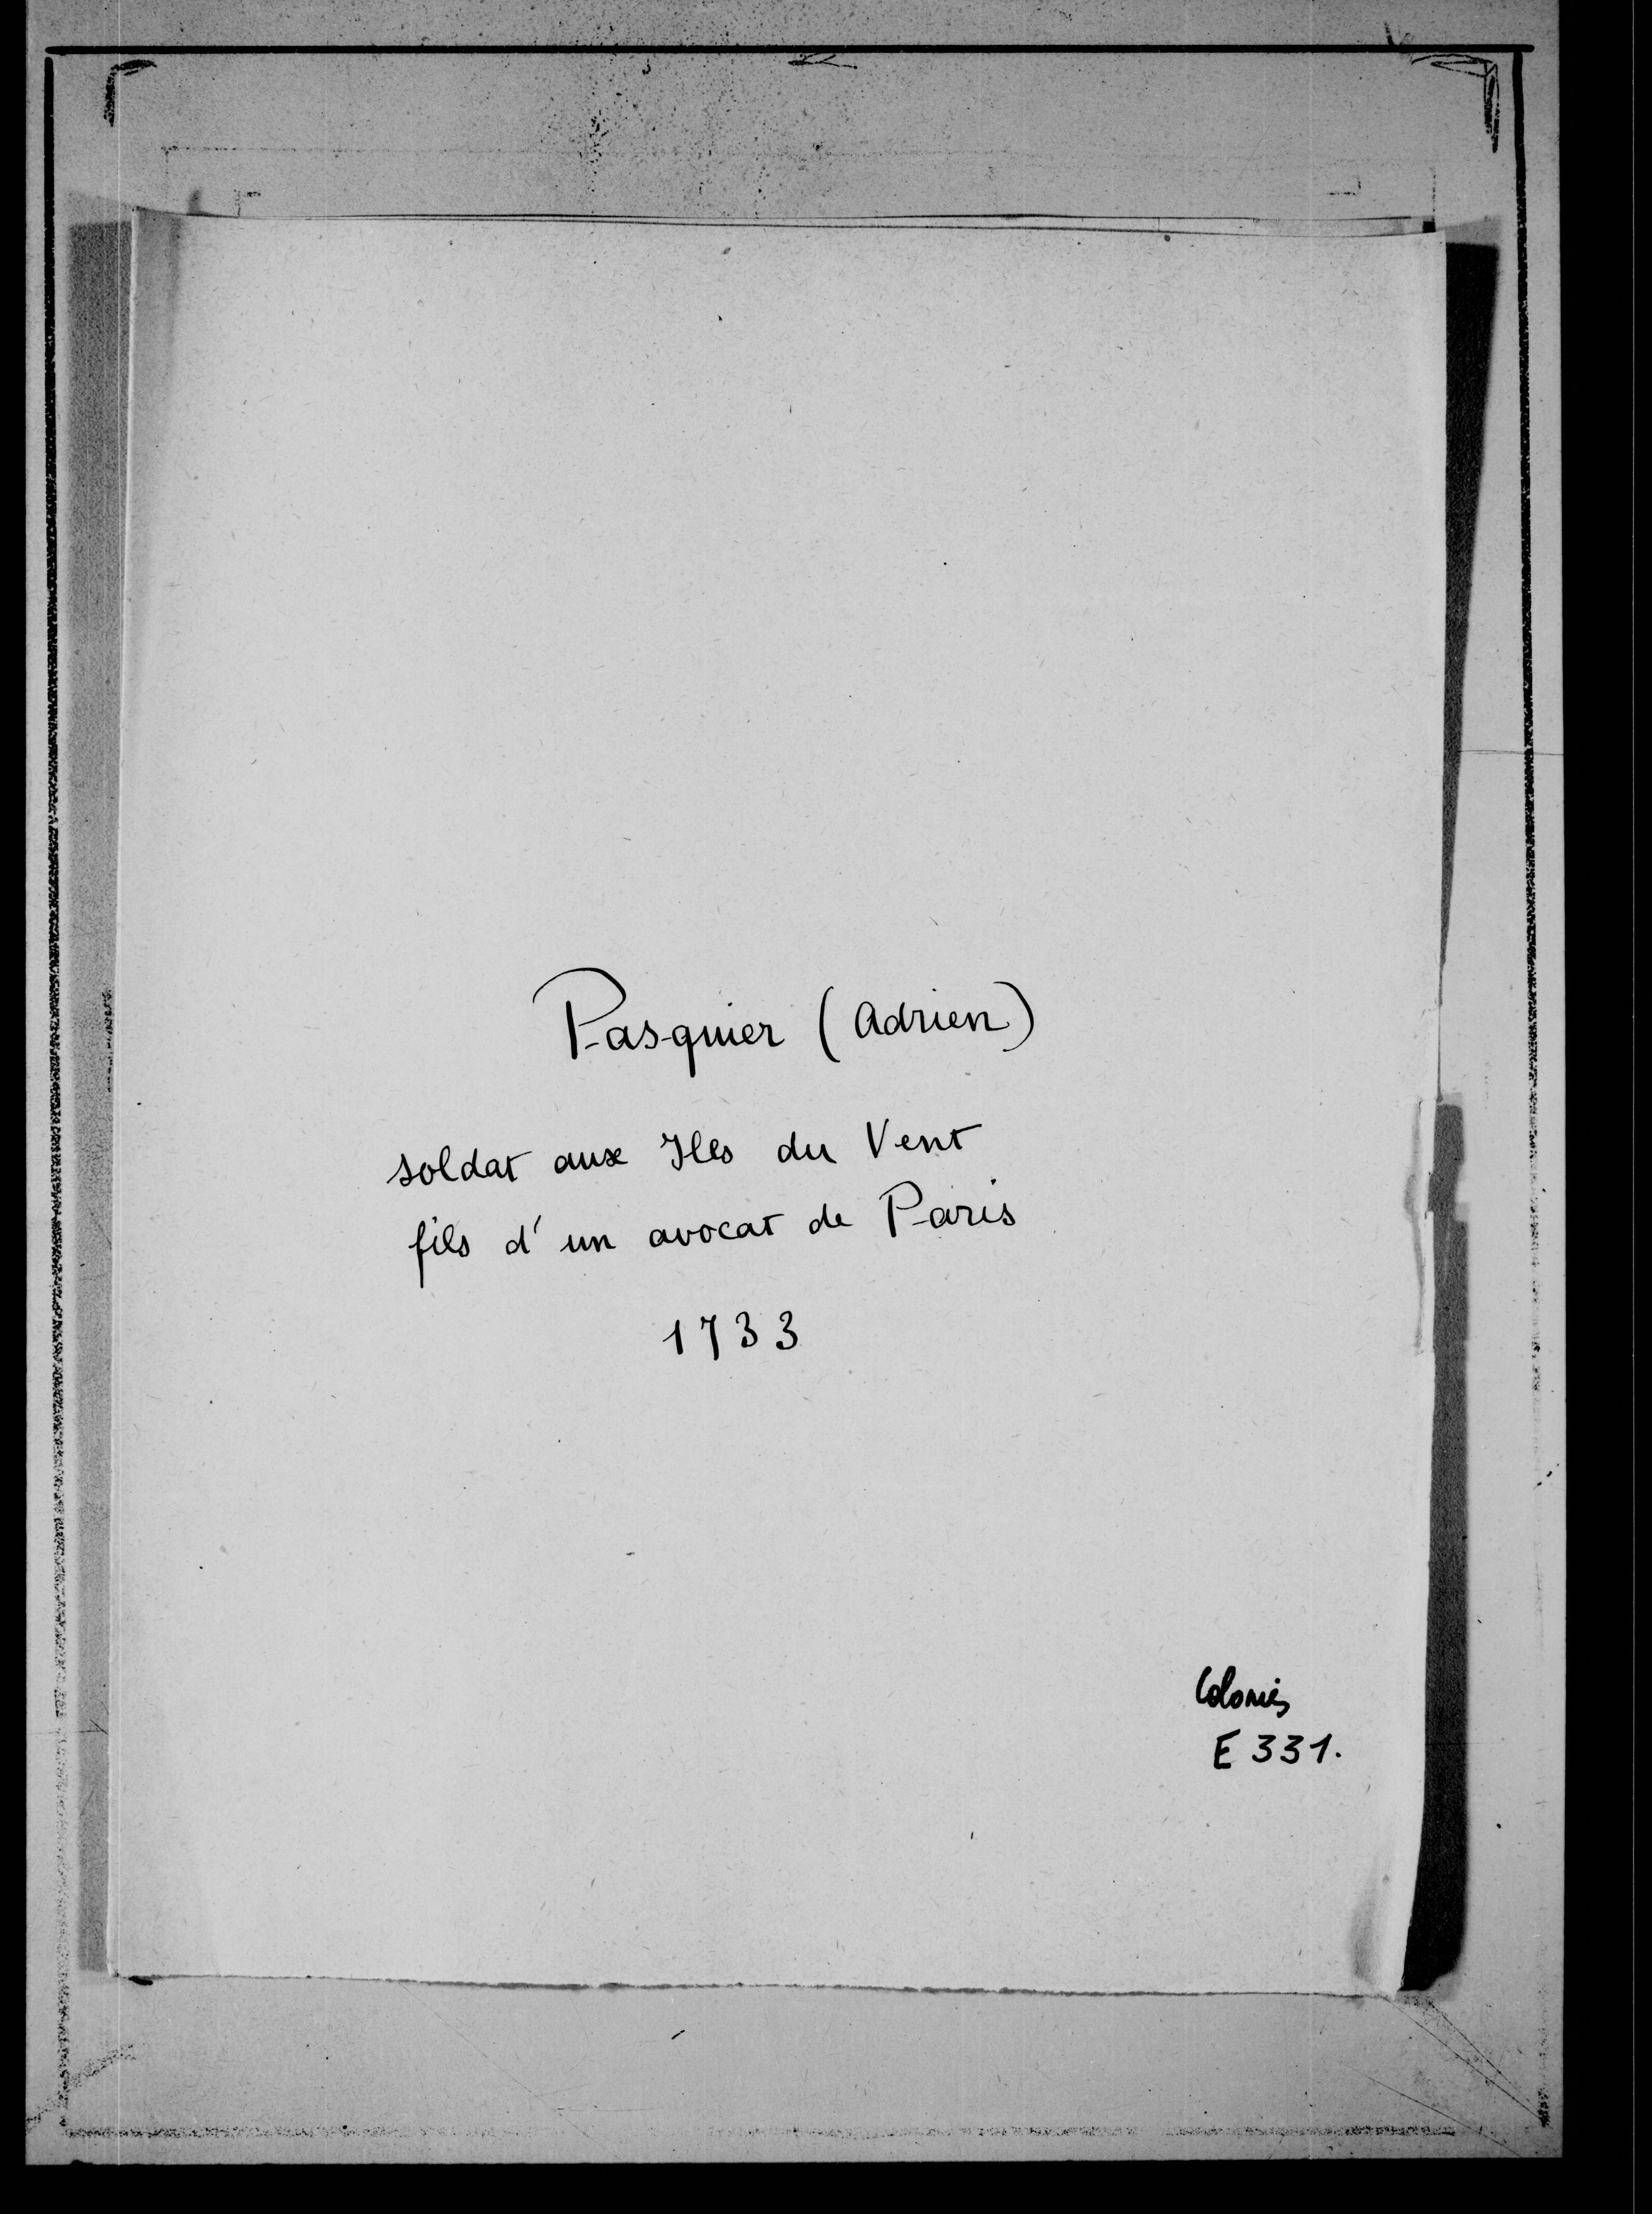 Pasquier (Adrien)
soldat aux Iles du Vent
fils d'un avocat de Paris
1733
Colonies
E 331.